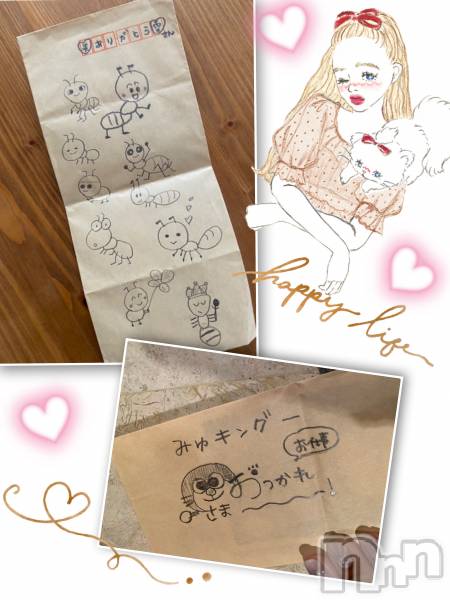 ありがとう
さん
happy life
みゅキングー
お仕事
おつかれ
さま〜!
Nnn